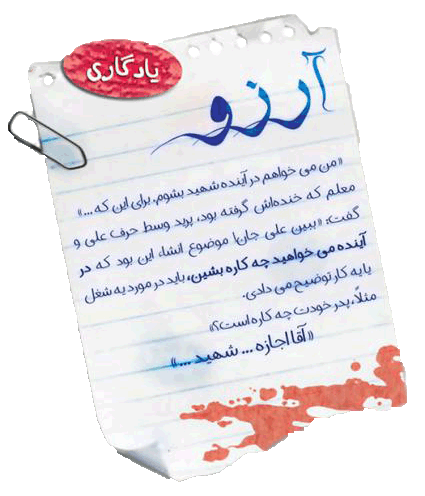 یادگاری
آرزو
«من می خواهم در آینده شهید بشوم. برای این که ...»
معلم که خنده‌اش گرفته بود، پرید وسط حرف علی و
گفت: «ببین علی جان! موضوع انشاء این بود که در
آینده می خواهید چه کاره بشین، باید در مورد یه شغل
یا یه کار توضیح می دادی.
مثلاً، پدر خودت چه کاره است؟»
«آقا اجازه ... شهید ...»